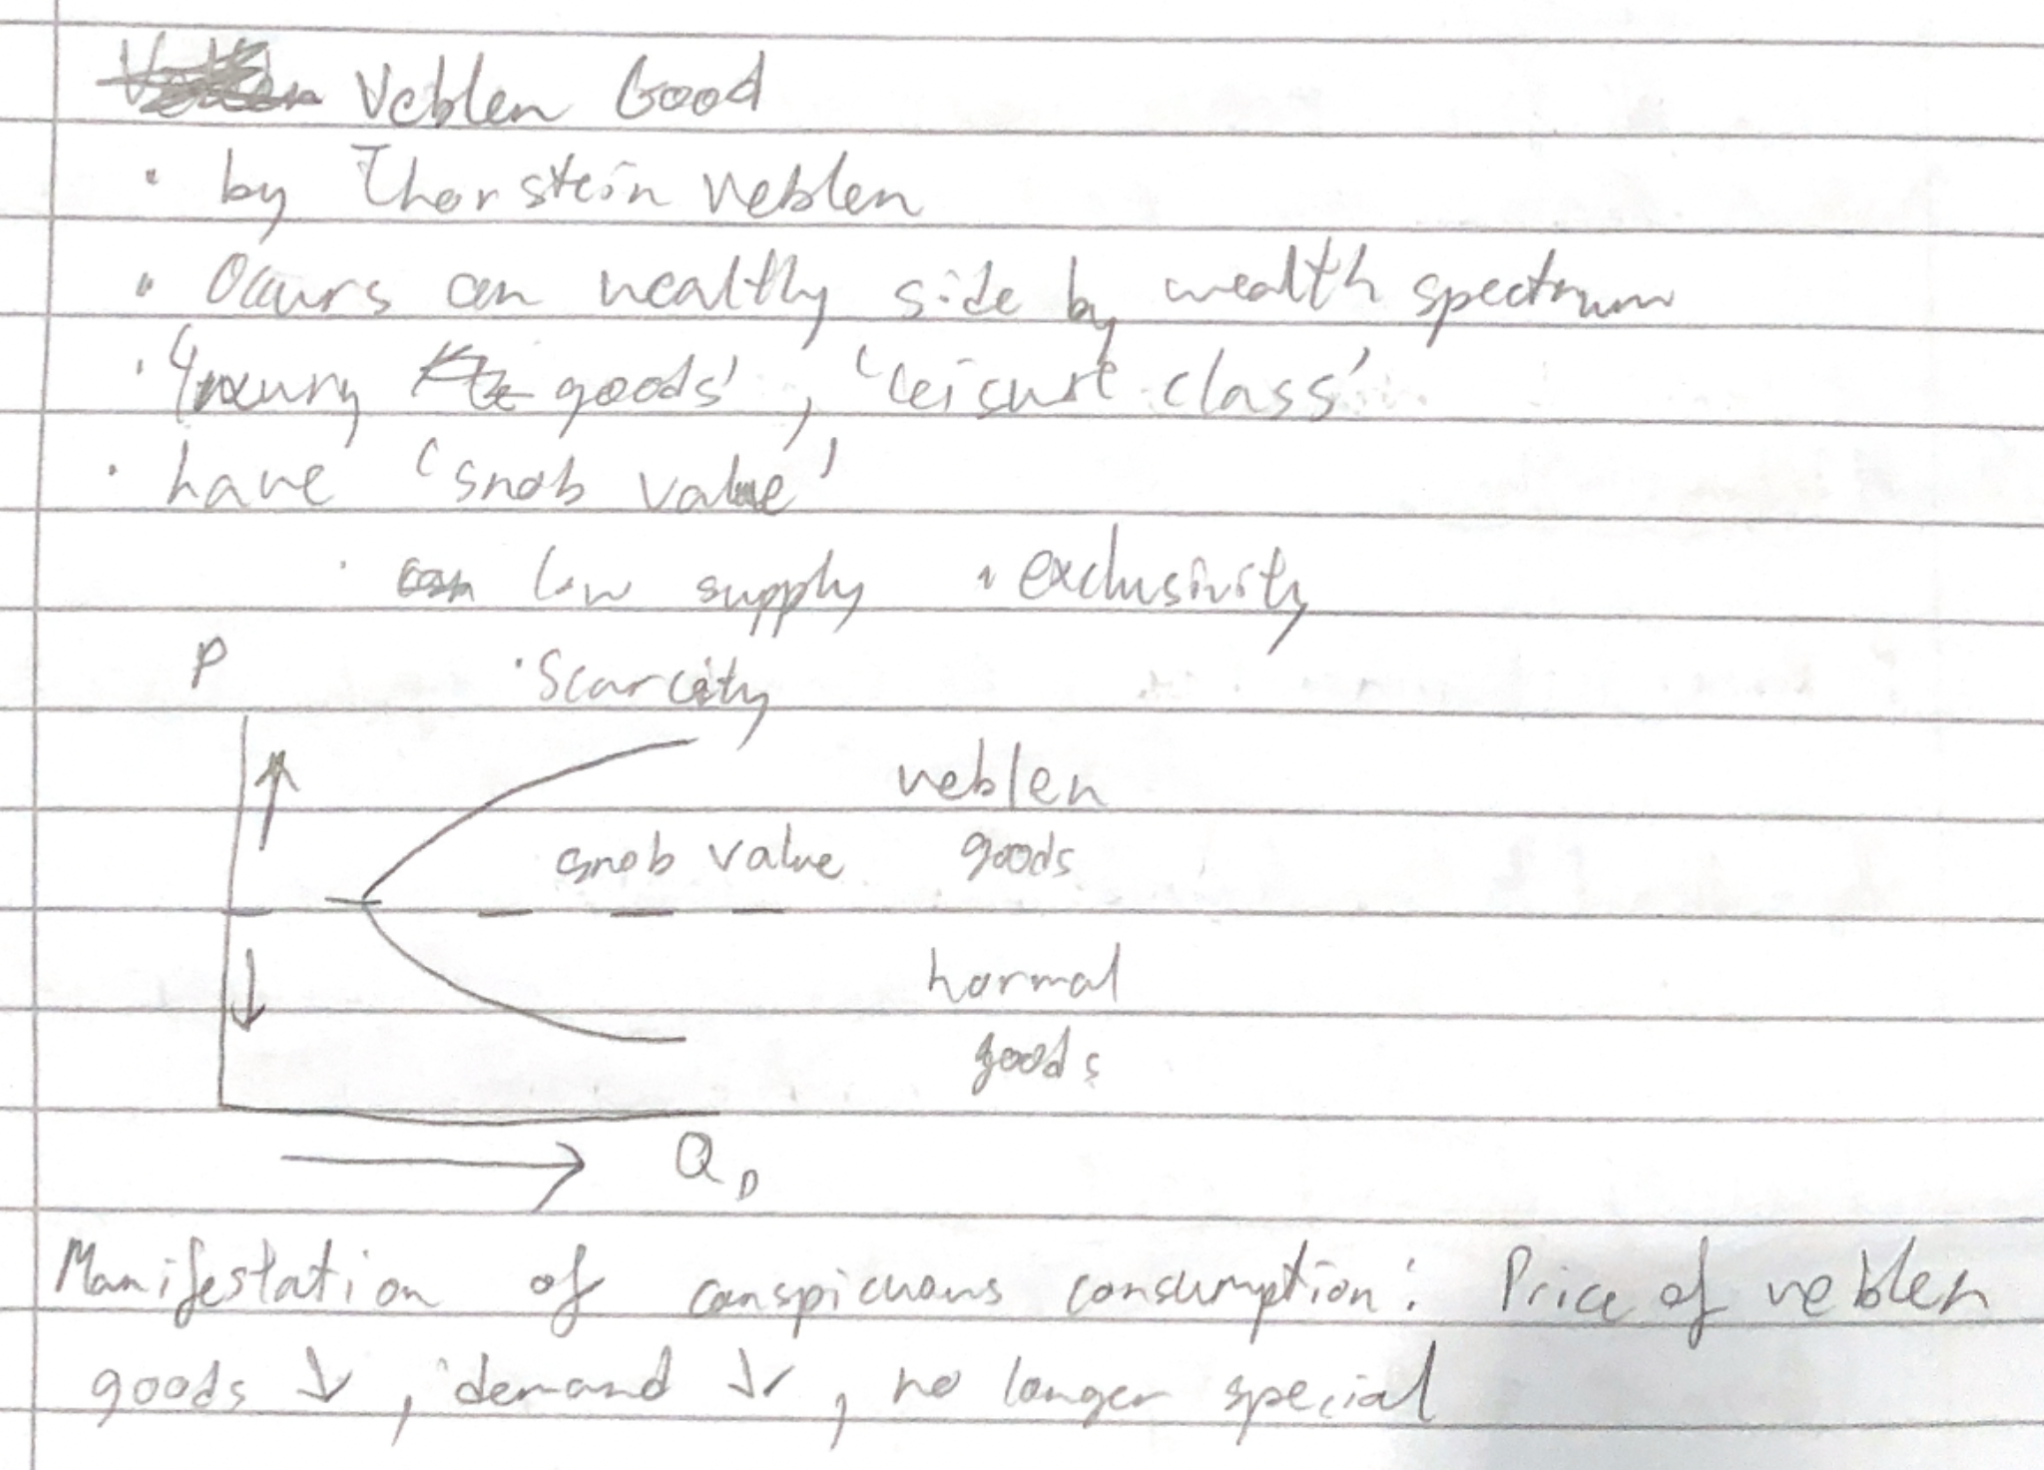 Veblen Good
· by Thorstein Veblen
· Occurs on wealthy side by wealth spectrum
· 'luxury goods', 'leisure class'
· have 'snob value'
· low supply · exclusivity
P · Scarcity
↑ veblen
snob value goods
↓ normal
goods
→ Q_D
Manifestation of conspicuous consumption: Price of veblen
goods ↓, demand ↓, no longer special